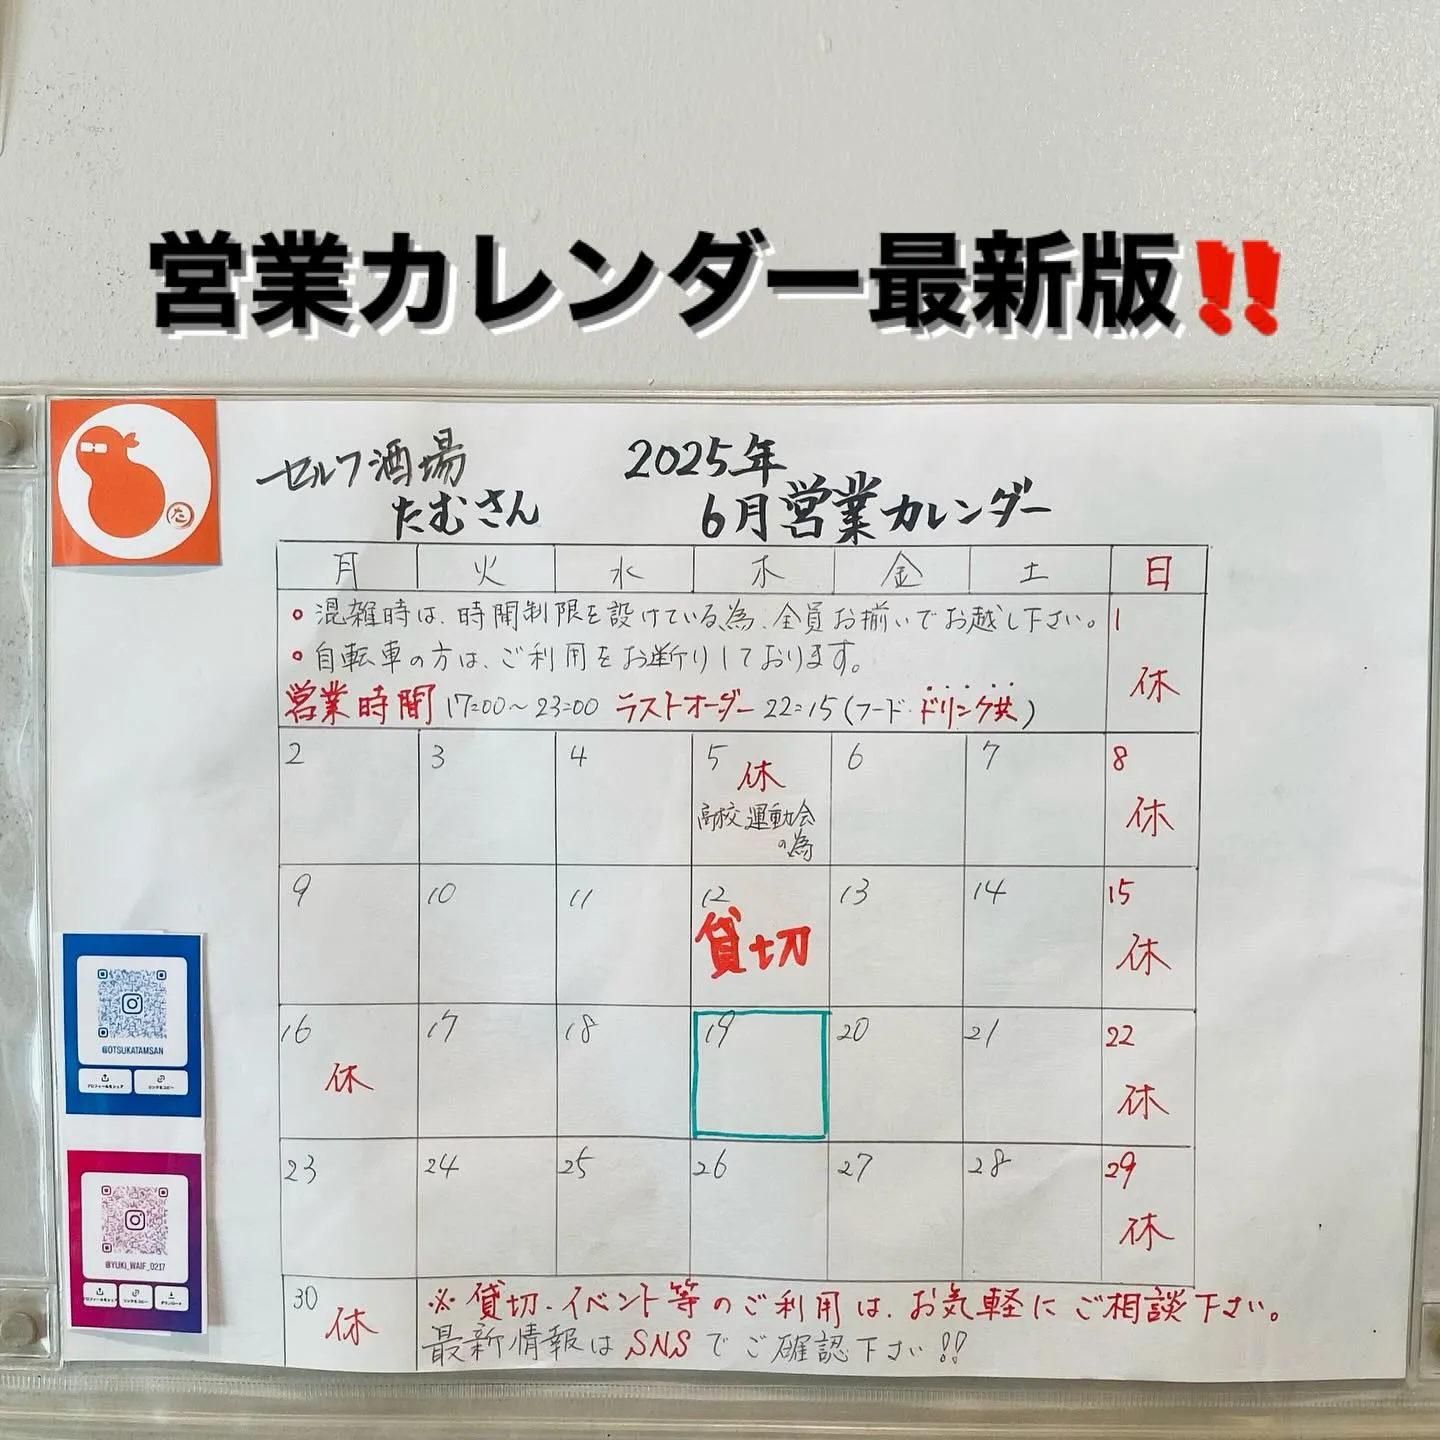 営業カレンダー最新版‼
セルフ酒場
たむさん
2025年
6月営業カレンダー
月 火 水 木 金 土 日
• 混雑時は、時間制限を設けている為、全員お揃いでお越し下さい。
• 自転車の方は、ご利用をお断りしております。
営業時間 17:00〜23:00 ラストオーダー 22:15 (フード・ドリンク共)
1
休
2 3 4 5 6 7 8
休 休
高校運動会
の為
9 10 11 12 13 14 15
貸切 休
16 17 18 19 20 21 22
休 休
23 24 25 26 27 28 29
休
30
休
※ 貸切、イベント等のご利用は、お気軽にご相談下さい。
最新情報はSNSでご確認下さい!!
た
@OTSUKATAMSAN
プロフィールをシェア リンクをコピー
@YUKI_WAIF_0217
プロフィールをシェア リンクをコピー ダウンロード